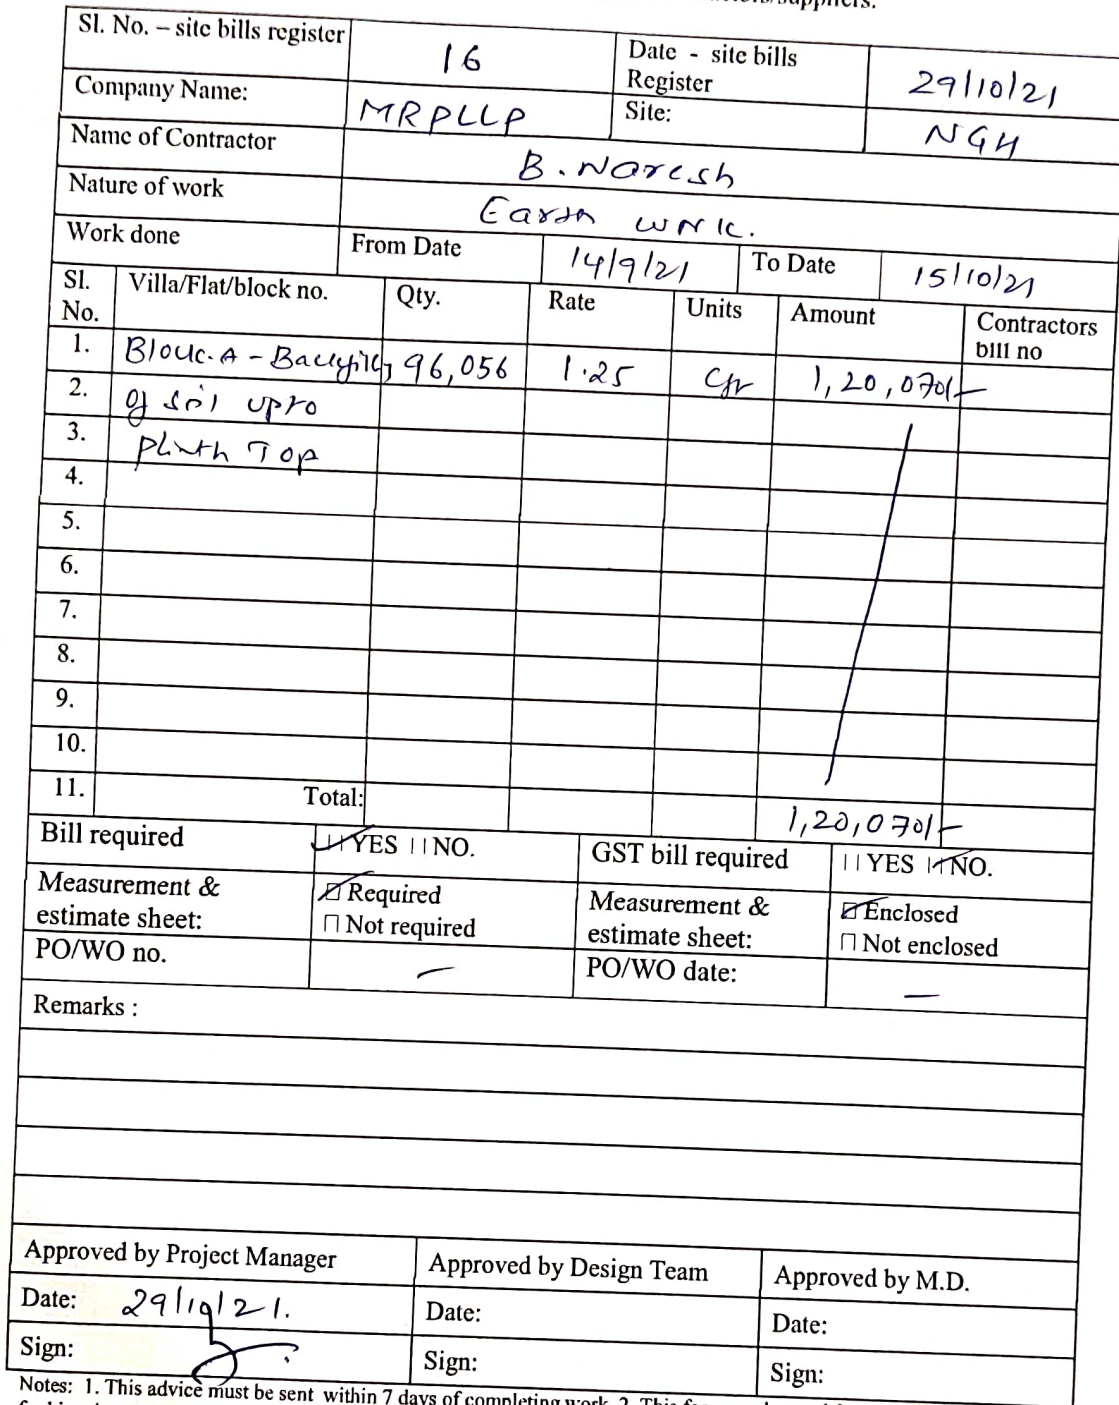 Sl. No. – site bills register 16 Date - site bills Register 29/10/21
Company Name: MRPLLP Site: NGH
Name of Contractor B. Naresh
Nature of work Earth work.
Work done From Date 14/9/21 To Date 15/10/21
Sl. No. Villa/Flat/block no. Qty. Rate Units Amount Contractors bill no
1. Block-A - Backfilling 96,056 1.25 Cft 1,20,070/-
2. of soil upto
3. plinth Top
4.
5.
6.
7.
8.
9.
10.
11. Total: 1,20,070/-
Bill required YES NO. GST bill required YES NO.
Measurement & estimate sheet: Required Measurement & estimate sheet: Enclosed
Not required Not enclosed
PO/WO no. – PO/WO date: –
Remarks :
Approved by Project Manager Approved by Design Team Approved by M.D.
Date: 29/10/21. Date: Date:
Sign: Sign: Sign:
Notes: 1. This advice must be sent within 7 days of completing work. 2. This